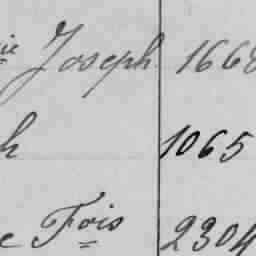 ie Joseph 1668
h 1065
e Fois 2304